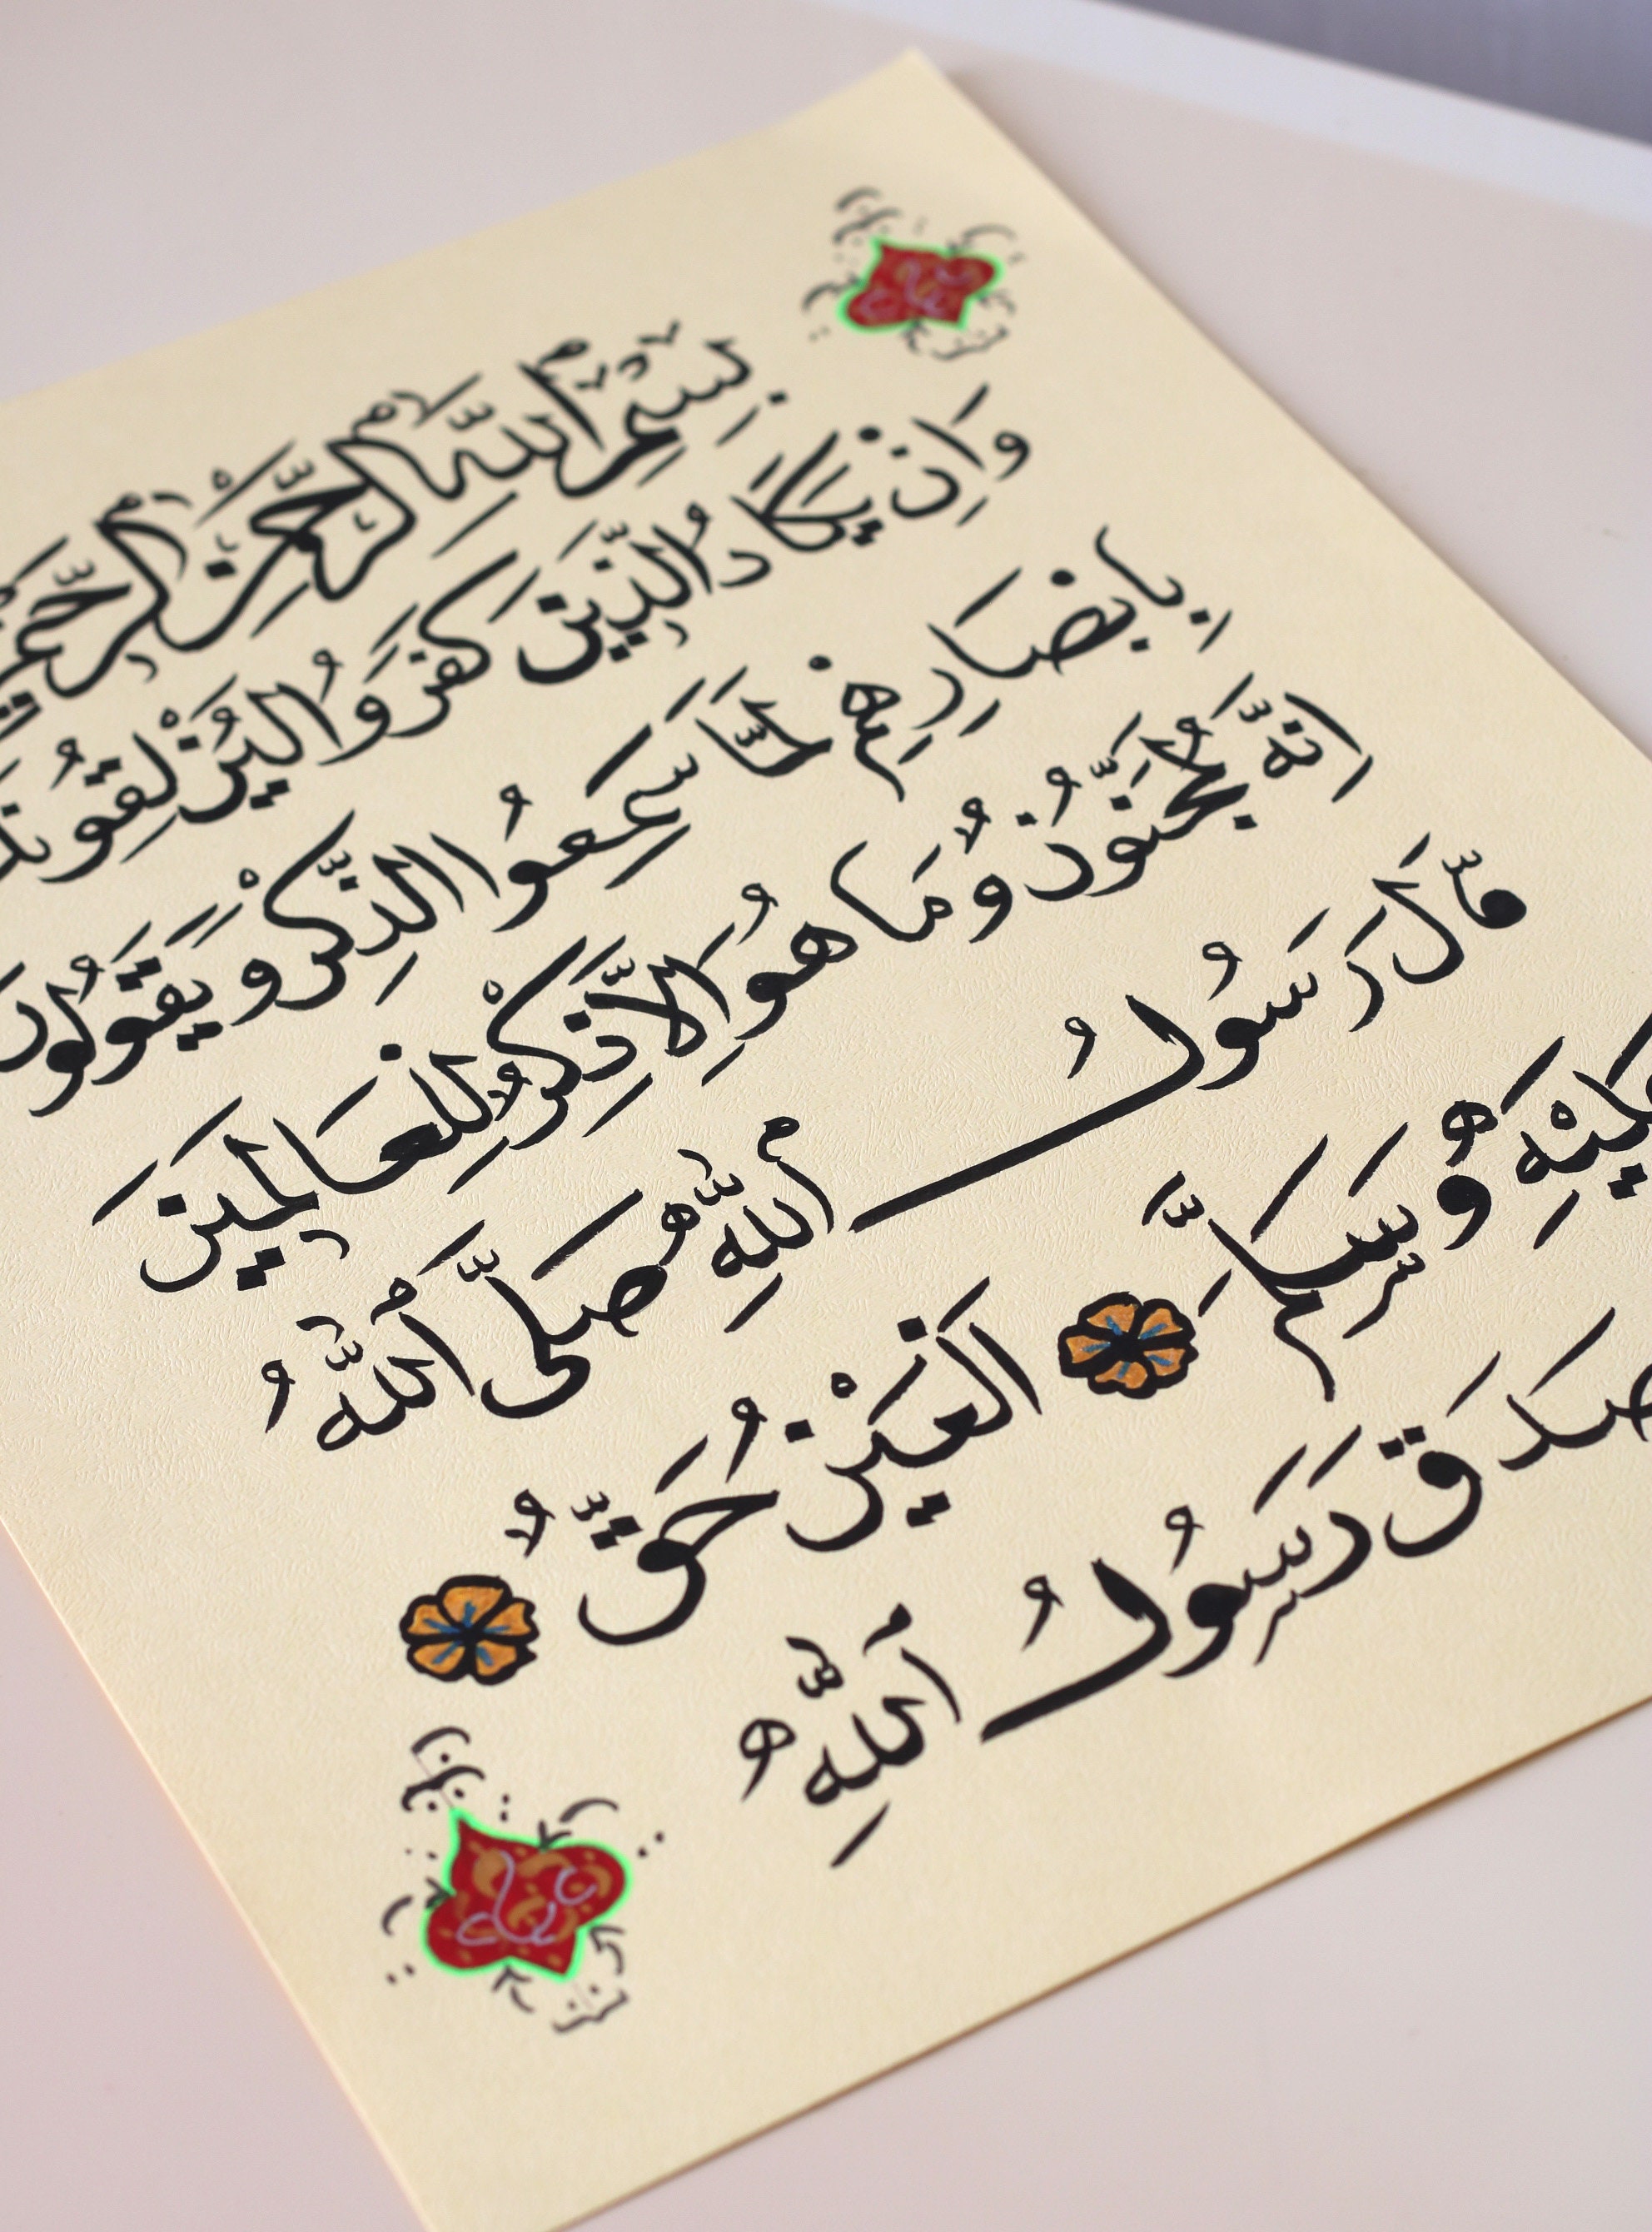 بِسْمِ اللَّهِ الرَّحْمَنِ الرَّحِيمِ
وَاِنْ يَكَادُ الَّذِينَ كَفَرُوا لَيُزْلِقُونَكَ
بِاَبْصَارِهِمْ لَمَّا سَمِعُوا الذِّكْرَ وَيَقُولُونَ
اِنَّهُ لَمَجْنُونٌ وَمَا هُوَ اِلَّا ذِكْرٌ لِلْعَالَمِينَ
قَالَ رَسُولُ اللَّهِ صَلَّى اللَّهُ
عَلَيْهِ وَسَلَّمَ الْعَيْنُ حَقٌّ
صَدَقَ رَسُولُ اللَّهِ